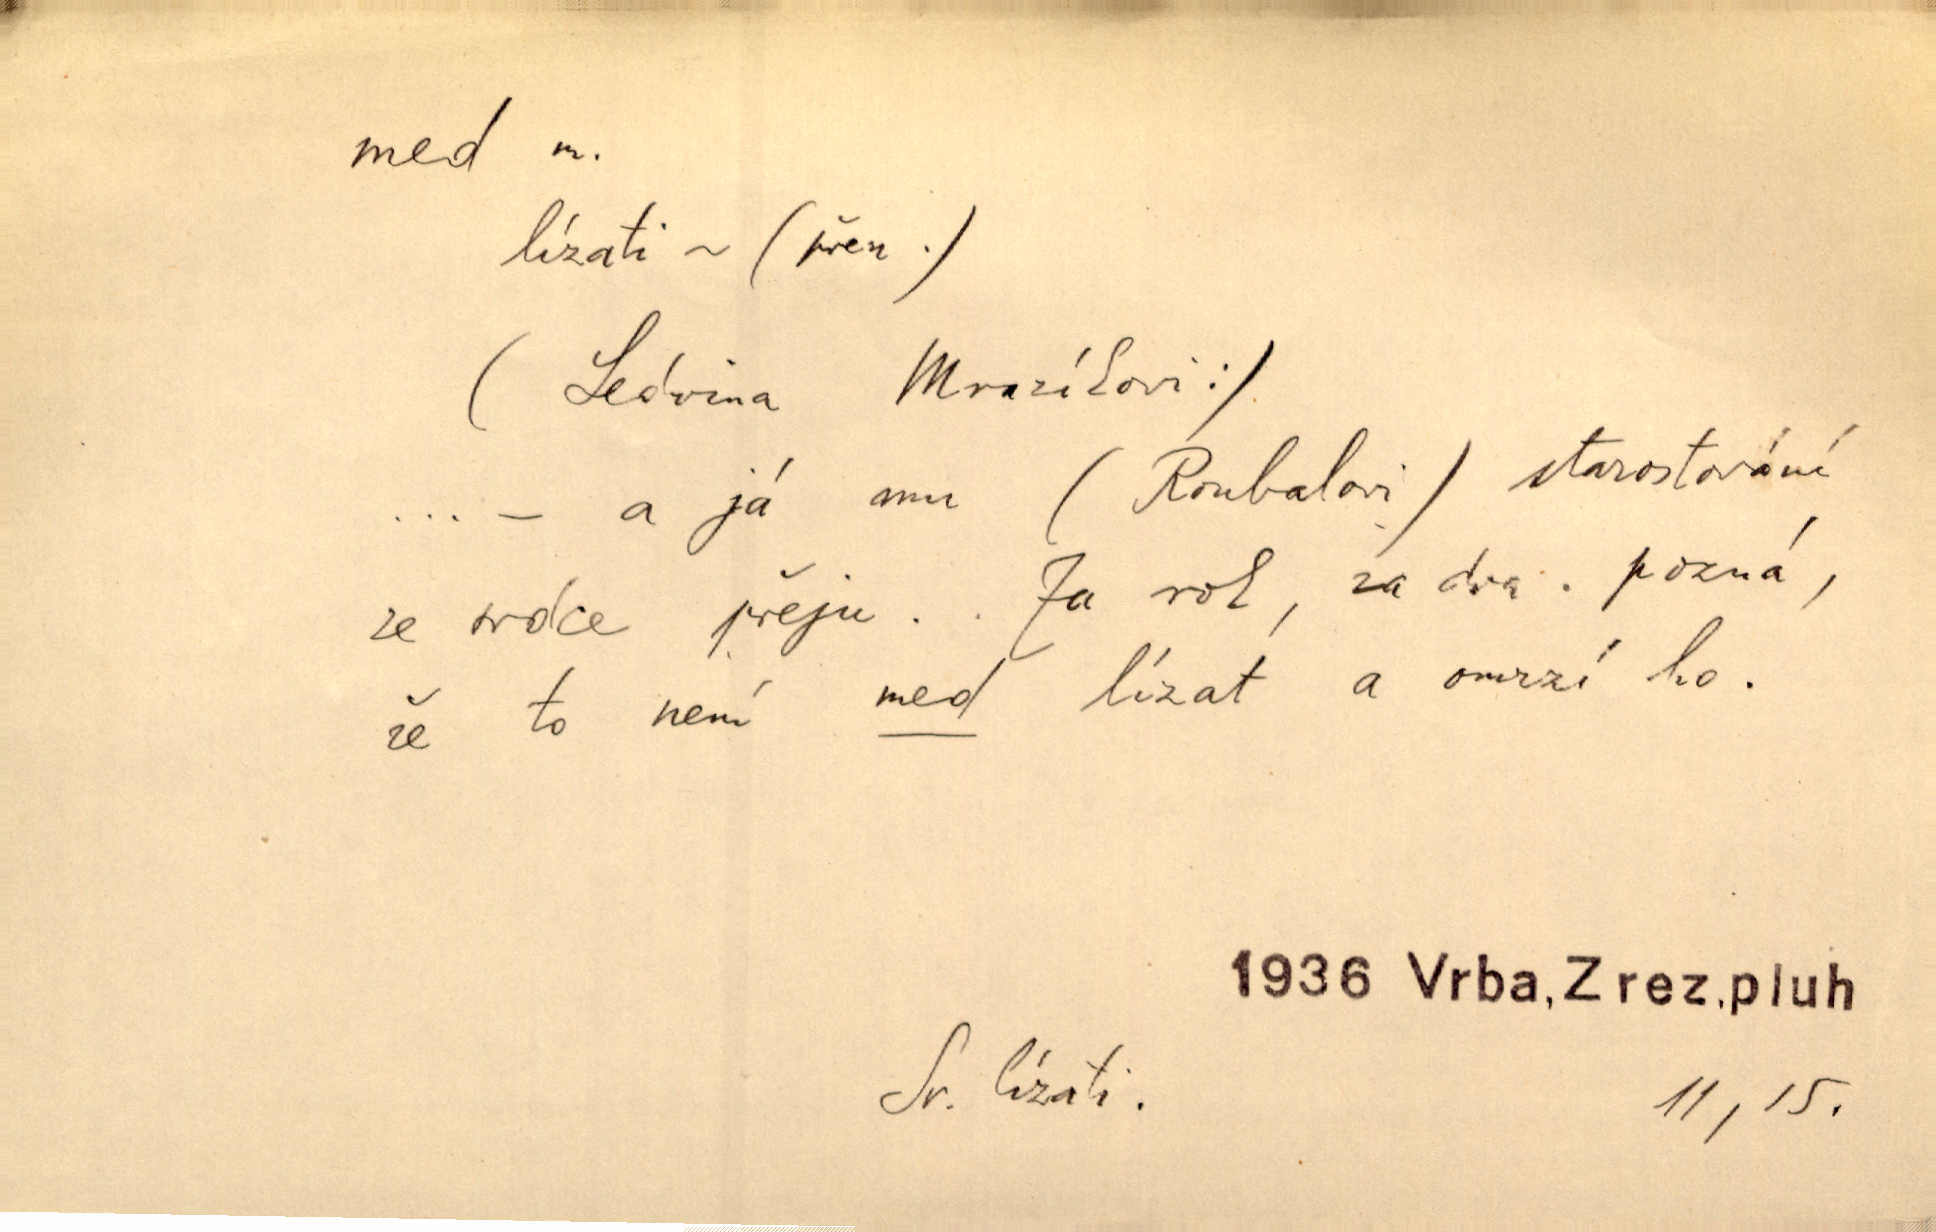 med m.
lízati ~ (přen.)
(Ledvina Mrazíkovi:)
... – a já mu (Roubalovi) starostování
ze srdce přeju. Za rok, za dva. pozná,
že to není med lízat a omrzí ho.
1936 Vrba, Z rez.pluh
Sr. lízati.
11, 15.